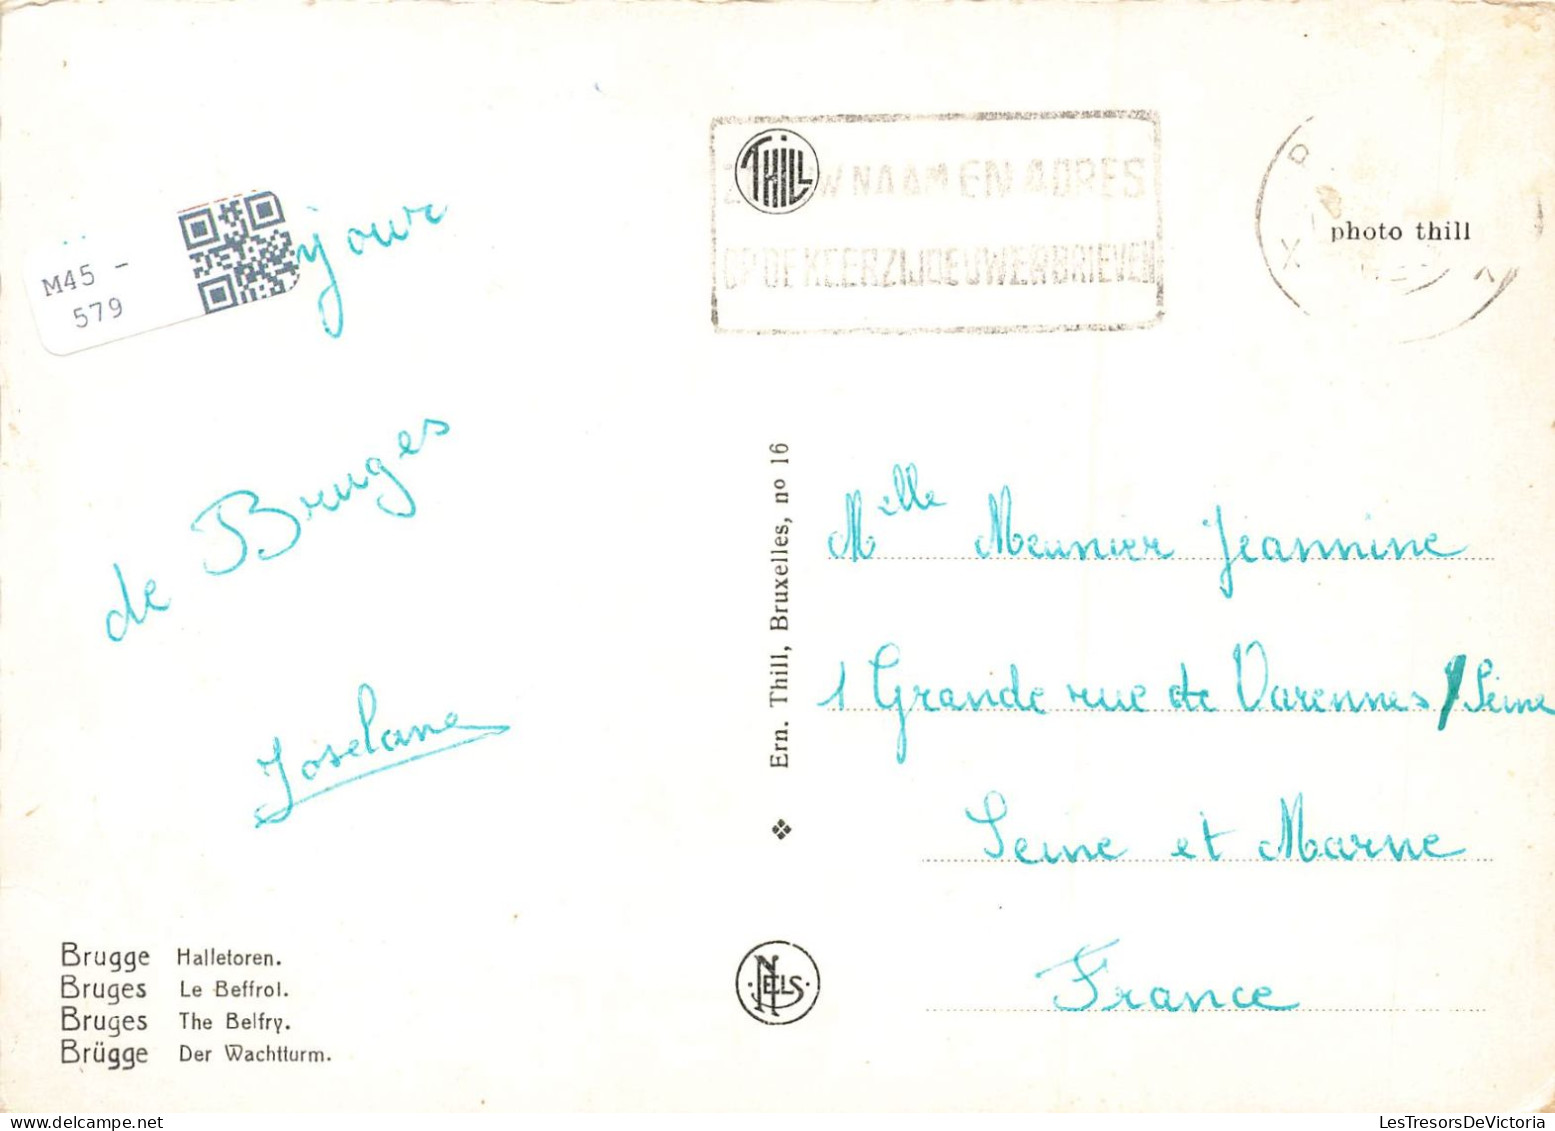 M45 -
579
jour
de Bruges
Joselane
Brugge Halletoren.
Bruges Le Beffroi.
Bruges The Belfry.
Brügge Der Wachtturm.
THILL
NAAM EN ADRES
OP DE KEERZIJDE UWER BRIEVEN
photo thill
Ern. Thill, Bruxelles, no 16
NELS
Melle Meunier Jeannine
1 Grande rue de Varennes / Seine
Seine et Marne
France
LesTresorsDeVictoria